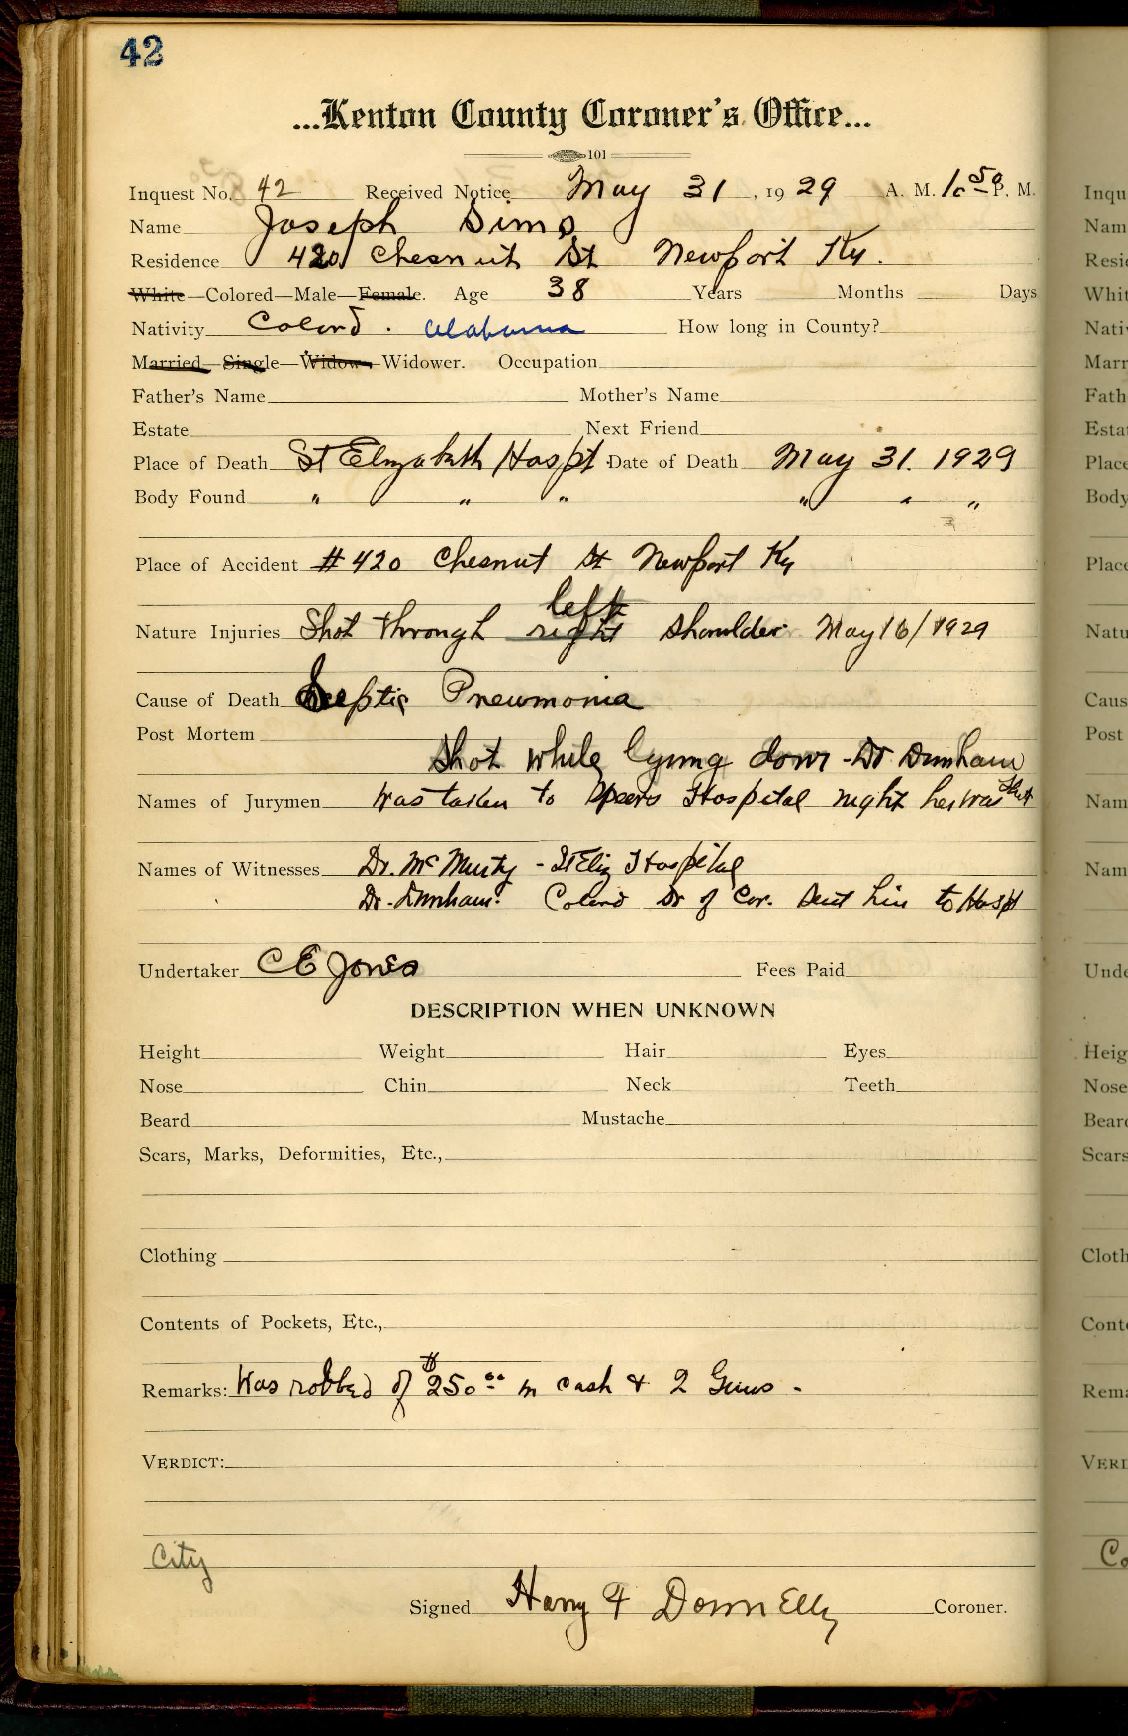 42
...Kenton County Coroner's Office...
101
Inquest No. 42 Received Notice May 31, 1929 A. M. 10 50 P. M.
Name Joseph Sims
Residence 420 Chesnut St Newport Ky.
White—Colored—Male—Female. Age 38 Years Months Days
Nativity Colord. Alabama How long in County?
Married—Single—Widow—Widower. Occupation
Father's Name Mother's Name
Estate Next Friend
Place of Death St Elizabeth Hospt Date of Death May 31. 1929
Body Found " " " " " "
Place of Accident # 420 Chesnut St Newport Ky
left
Nature Injuries Shot through right shoulder May 16/1929
Cause of Death Septic Pneumonia
Post Mortem
Shot while lying down - Dr Dunham
Names of Jurymen Was taken to Speers Hospital night he was shot
Names of Witnesses Dr. - St Eliz Hospital
Dr. Dunham. Colord Dr of Cov. Sent him to Hospt
Undertaker C E Jones Fees Paid
DESCRIPTION WHEN UNKNOWN
Height Weight Hair Eyes
Nose Chin Neck Teeth
Beard Mustache
Scars, Marks, Deformities, Etc.,
Clothing
Contents of Pockets, Etc.,
Remarks: Was robbed of $250.00 in cash & 2 Guns -
VERDICT:
City
Signed Harry F Donnelly Coroner.
Inqu
Nam
Resi
Whit
Nati
Marr
Fath
Esta
Place
Body
Place
Natu
Caus
Post
Nam
Nam
Unde
Heig
Nose
Beard
Scars
Cloth
Conte
Rema
VERD
Co